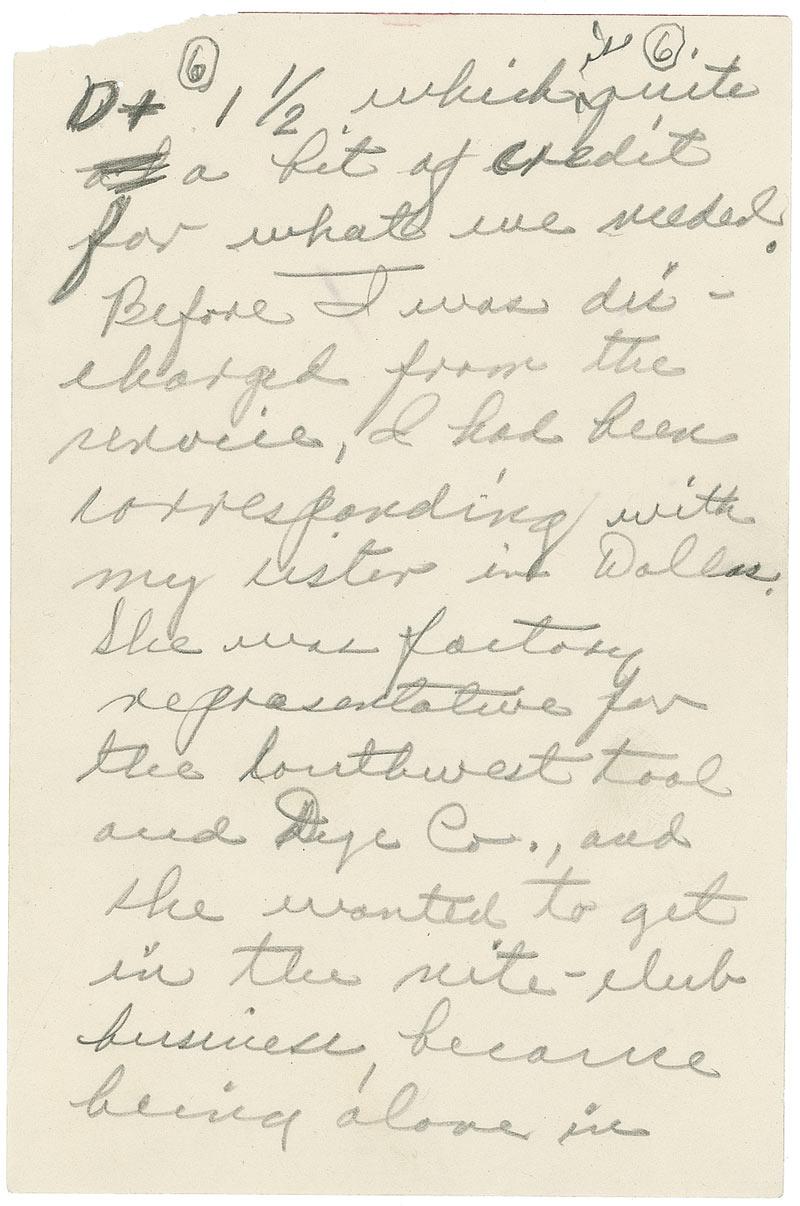 ⑥ is ⑥.
D+ 1 1/2 which quite
a bit of credit
for what we needed.
Before I was dis-
charged from the
service, I had been
corresponding with
my sister in Dallas.
She was factory
representative for
the Southwest tool
and Dye Co., and
she wanted to get
in the nite-club
business, because
being alone in